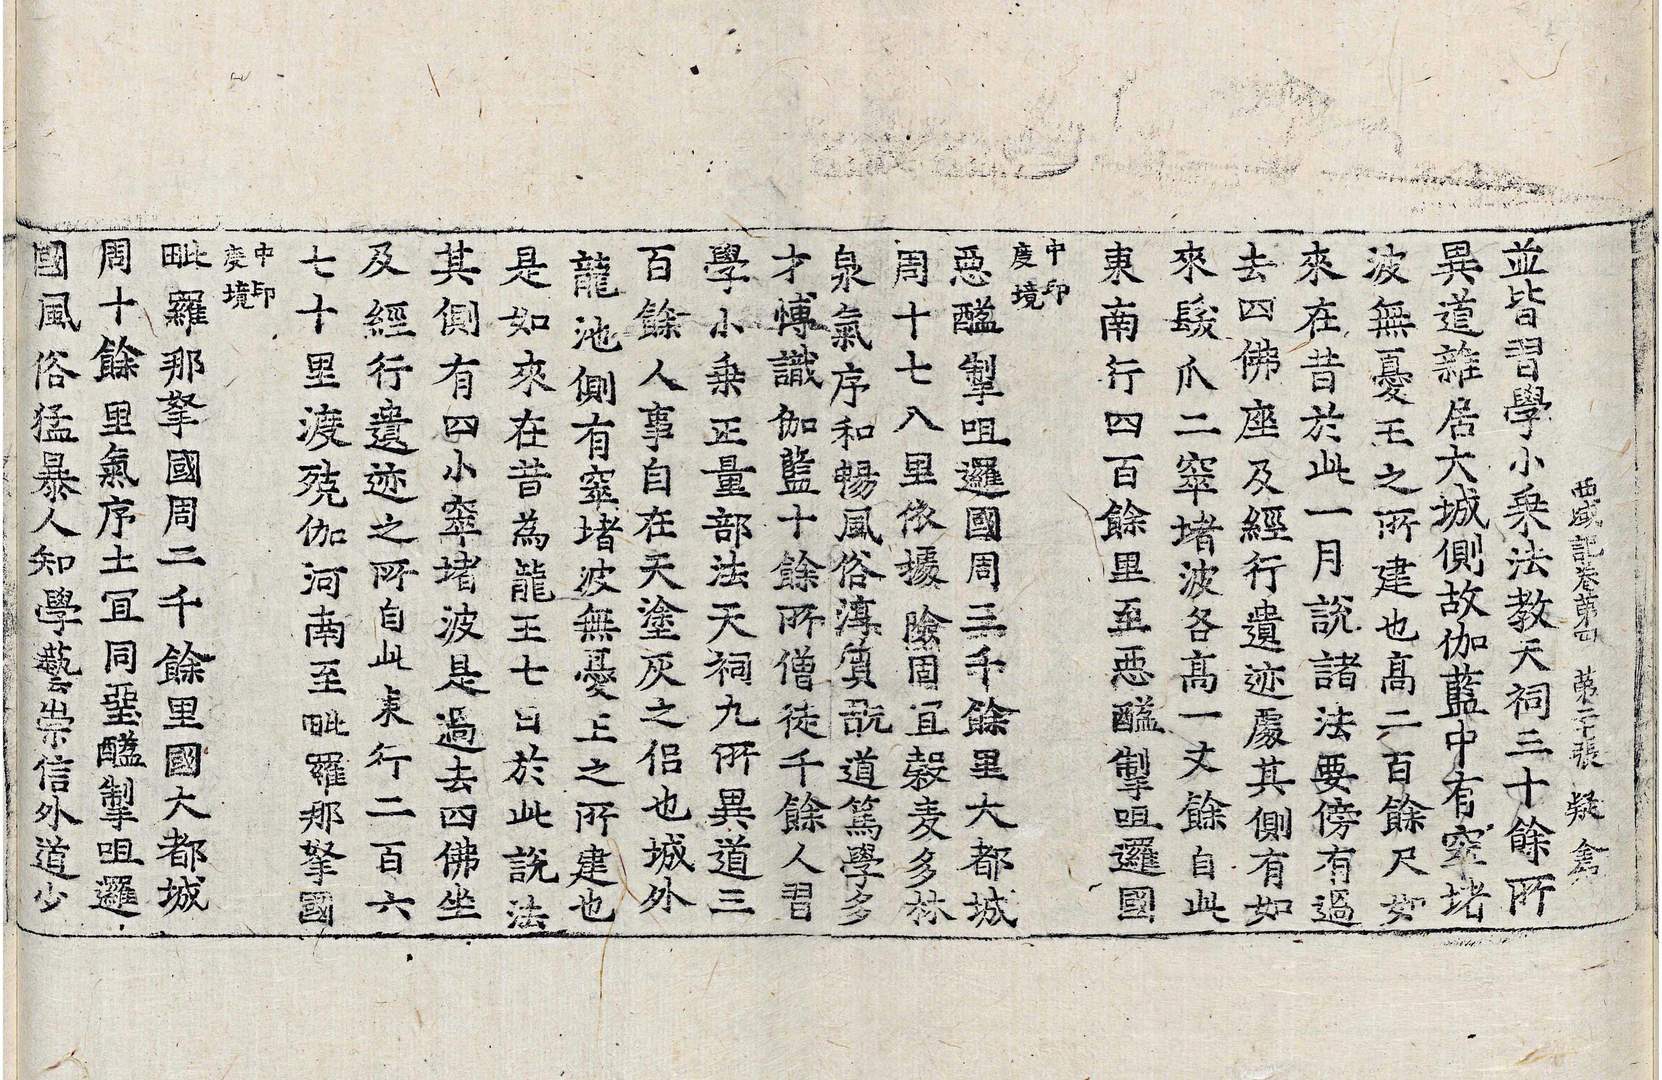 西域記卷第四 第二十張 凝禽
並皆習學小乗法教天祠三十餘所
異道雜居大城側故伽藍中有窣堵
波無憂王之所建也髙二百餘尺如
來在昔於此一月說諸法要傍有過
去四佛座及經行遺迹處其側有如
來髮爪二窣堵波各髙一丈餘自此
東南行四百餘里至惡醯掣咀邏國
中印
度境
惡醯掣咀邏國周三千餘里大都城
周十七八里依據險固宜穀麦多林
泉氣序和暢風俗淳質翫道篤學多
才博識伽藍十餘所僧徒千餘人習
學小乗正量部法天祠九所異道三
百餘人事自在天塗灰之侶也城外
龍池側有窣堵波無憂王之所建也
是如來在昔為龍王七日於此說法
其側有四小窣堵波是過去四佛坐
及經行遺迹之所自此東行二百六
七十里渡殑伽河南至毗羅那拏國
中印
度境
毗羅那拏國周二千餘里國大都城
周十餘里氣序土宜同堊醯掣咀邏
國風俗猛暴人知學藝崇信外道少